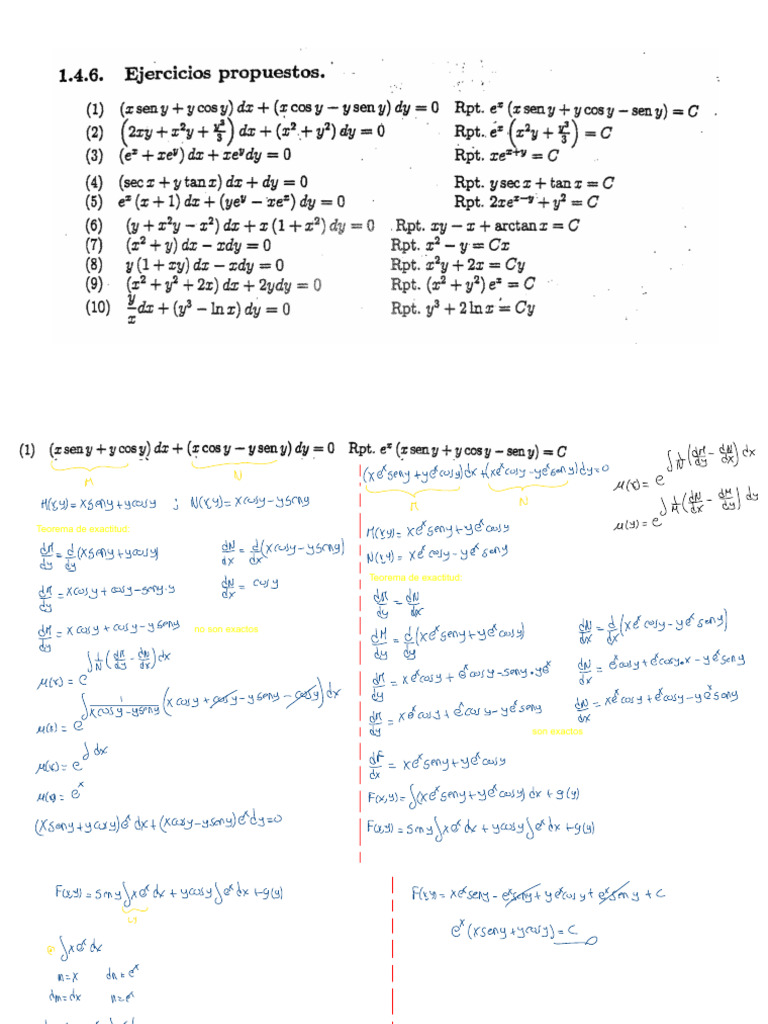 1.4.6. Ejercicios propuestos.
(1) (x sen y + y cos y) dx + (x cos y − y sen y) dy = 0 Rpt. eˣ (x sen y + y cos y − sen y) = C
(2) (2xy + x²y + y³/3) dx + (x² + y²) dy = 0 Rpt. eˣ (x²y + y³/3) = C
(3) (eˣ + xeʸ) dx + xeʸdy = 0 Rpt. xeˣ⁺ʸ = C
(4) (sec x + y tan x) dx + dy = 0 Rpt. y sec x + tan x = C
(5) eˣ (x + 1) dx + (yeʸ − xeˣ) dy = 0 Rpt. 2xeˣ⁻ʸ + y² = C
(6) (y + x²y − x²) dx + x (1 + x²) dy = 0 Rpt. xy − x + arctan x = C
(7) (x² + y) dx − xdy = 0 Rpt. x² − y = Cx
(8) y (1 + xy) dx − xdy = 0 Rpt. x²y + 2x = Cy
(9) (x² + y² + 2x) dx + 2ydy = 0 Rpt. (x² + y²) eˣ = C
(10) y/x dx + (y³ − ln x) dy = 0 Rpt. y³ + 2 ln x = Cy
(1) (x sen y + y cos y) dx + (x cos y − y sen y) dy = 0 Rpt. eˣ (x sen y + y cos y − sen y) = C
M N
M(x,y) = x seny + y cosy ; N(x,y) = x cosy − y seny
Teorema de exactitud:
dM/dy = d/dy (x seny + y cosy) dN/dx = d/dx (x cosy − y seny)
dM/dy = x cosy + cosy − seny·y dN/dx = cosy
dM/dy = x cosy + cosy − y seny no son exactos
μ(x) = e^∫ 1/N (dM/dy − dN/dx) dx
μ(x) = e^∫ 1/(x cosy − y seny) (x cosy + cosy − y seny − cosy) dx
μ(x) = e^∫ dx
μ(x) = eˣ
(x seny + y cosy) eˣ dx + (x cosy − y seny) eˣ dy = 0
(x eˣ seny + y eˣ cosy) dx + (x eˣ cosy − y eˣ seny) dy = 0
M N
μ(x) = e^∫ 1/N (dM/dy − dN/dx) dx
μ(y) = e^∫ 1/M (dN/dx − dM/dy) dy
M(x,y) = x eˣ seny + y eˣ cosy
N(x,y) = x eˣ cosy − y eˣ seny
Teorema de exactitud:
dM/dy = dN/dx
dM/dy = d/dy (x eˣ seny + y eˣ cosy) dN/dx = d/dx (x eˣ cosy − y eˣ seny)
dM/dy = x eˣ cosy + eˣ cosy − seny·y eˣ dN/dx = eˣ cosy + eˣ cosy·x − y eˣ seny
dM/dy = x eˣ cosy + eˣ cosy − y eˣ seny dN/dx = x eˣ cosy + eˣ cosy − y eˣ seny
son exactos
dF/dx = x eˣ seny + y eˣ cosy
F(x,y) = ∫ (x eˣ seny + y eˣ cosy) dx + g(y)
F(x,y) = seny ∫ x eˣ dx + y cosy ∫ eˣ dx + g(y)
F(x,y) = seny ∫ x eˣ dx + y cosy ∫ eˣ dx + g(y)
∫ x eˣ dx
m = x dn = eˣ
dm = dx n = eˣ
F(x,y) = x eˣ seny − eˣ seny + y eˣ cosy + eˣ seny + C
eˣ (x seny + y cosy) = C